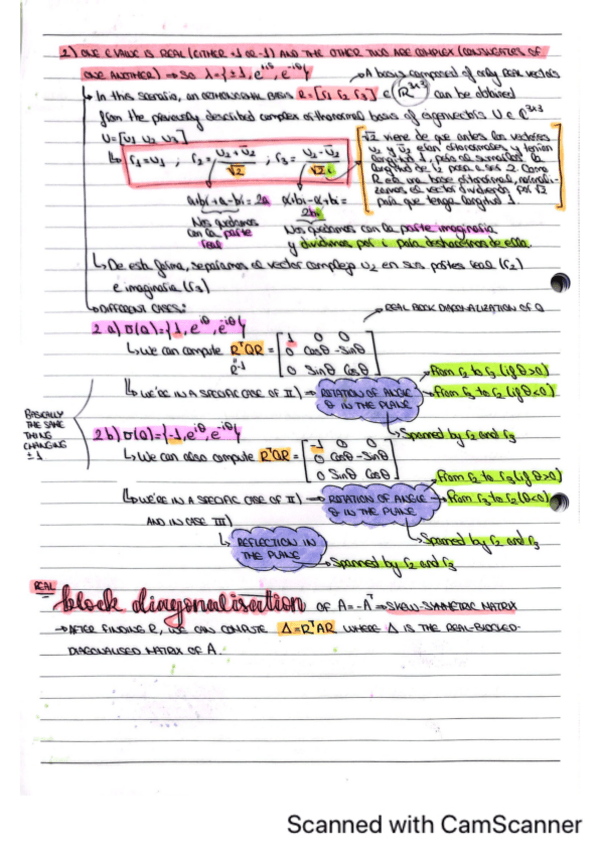 2) ONE EVALUE IS REAL (EITHER +1 OR -1) AND THE OTHER TWO ARE COMPLEX (CONJUGATES OF
ONE ANOTHER) ⇒ SO λ={±1, e^{iθ}, e^{-iθ}}
→ A basis composed of only REAL vectors
↳ In this scenario, an ORTHONORMAL BASIS R=[r1 r2 r3] ∈ ℝ^{3x3} can be obtained
from the previously described complex orthonormal basis of eigenvectors U ∈ ℂ^{3x3}
U=[u1 u2 u3]
↳ r1=u1 ; r2= (u2+ū2)/√2 ; r3= (u2-ū2)/√2 i
√2 viene de que antes los vectores
u2 y ū2 eran ortonormales y tenían
longitud 1, pero al sumarlos la
longitud de r2 pasa a ser 2. Como
R es una base ortonormal, normali-
zamos el vector dividiendo por √2
para que tenga longitud 1.
a+bi+a-bi=2a
a+bi-a+bi=
2bi
Nos quedamos
con la parte
real
Nos quedamos con la parte imaginaria
y dividimos por i para deshacernos de ella.
↳ De esta forma, separamos el vector complejo u2 en sus partes real (r2)
e imaginaria (r3)
↳ DIFFERENT CASES:
→ REAL BLOCK DIAGONALIZATION OF Q
2 a) σ(Q)={1, e^{iθ}, e^{-iθ}}
↳ We can compute R^TQR = [1 0 0
R^-1 0 Cosθ -Sinθ
0 Sinθ Cosθ]
↳ WE'RE IN A SPECIFIC CASE OF II) → ROTATION OF ANGLE
θ IN THE PLANE
→ From r2 to r3 (if θ>0)
→ From r3 to r2 (if θ<0)
↳ Spanned by r2 and r3
BASICALLY
THE SAME
THING
CHANGING
±1
2 b) σ(Q)={-1, e^{iθ}, e^{-iθ}}
↳ We can also compute R^TQR = [-1 0 0
0 Cosθ -Sinθ
0 Sinθ Cosθ]
↳ WE'RE IN A SPECIFIC CASE OF II) → ROTATION OF ANGLE
θ IN THE PLANE
→ From r2 to r3 (if θ>0)
→ From r3 to r2 (θ<0)
AND IN CASE III)
↳ Spanned by r2 and r3
↳ REFLECTION IN
THE PLANE
→ Spanned by r2 and r3
REAL
block diagonalisation OF A=-A^T ⇒ SKEW-SYMMETRIC MATRIX
→ AFTER FINDING R, WE CAN COMPUTE Δ=R^TAR WHERE Δ IS THE REAL-BLOCKED-
DIAGONALISED MATRIX OF A.
Scanned with CamScanner